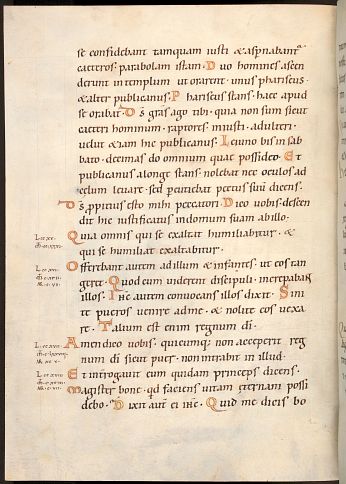 se confidebant tamquam iusti & aspnabant
caeteros: parabolam istam. Duo homines ascen
derunt in templum ut orarent. unus phariseus.
& alter publicanus. Phariseus stans. haec apud
se orabat. Ds gras ago tibi. quia non sum sicut
caeteri hominum. raptores iniusti. adulteri.
uelut & iam hic publicanus. Ieiuno bis in sab
bato. decimas do omnium quae possideo. Et
publicanus a longe stans. nolebat nec oculos ad
celum leuare. sed percutiebat pectus suum dicens.
Ds ppitius esto mihi peccatori. Dico uobis. descen
dit hic iustificatus in domum suam ab illo.
Quia omnis qui se exaltat humiliabitur. &
qui se humiliat exaltabitur.
Offerebant autem ad illum & infantes. ut eos tan
geret. Quod cum uiderent discipuli. increpabant
illos. Ihc autem conuocans illos dixit. Sini
te pueros uenire ad me. & nolite eos ueta
re. Talium est enim regnum di.
Amen dico uobis. quicumq; non acceperit reg
num di sicut puer. non intrabit in illud.
Et interrogauit eum quidam princeps dicens.
Magister bone. qd faciens uitam eternam possi
debo. Dixit aut ei ihc. Quid me dicis bo